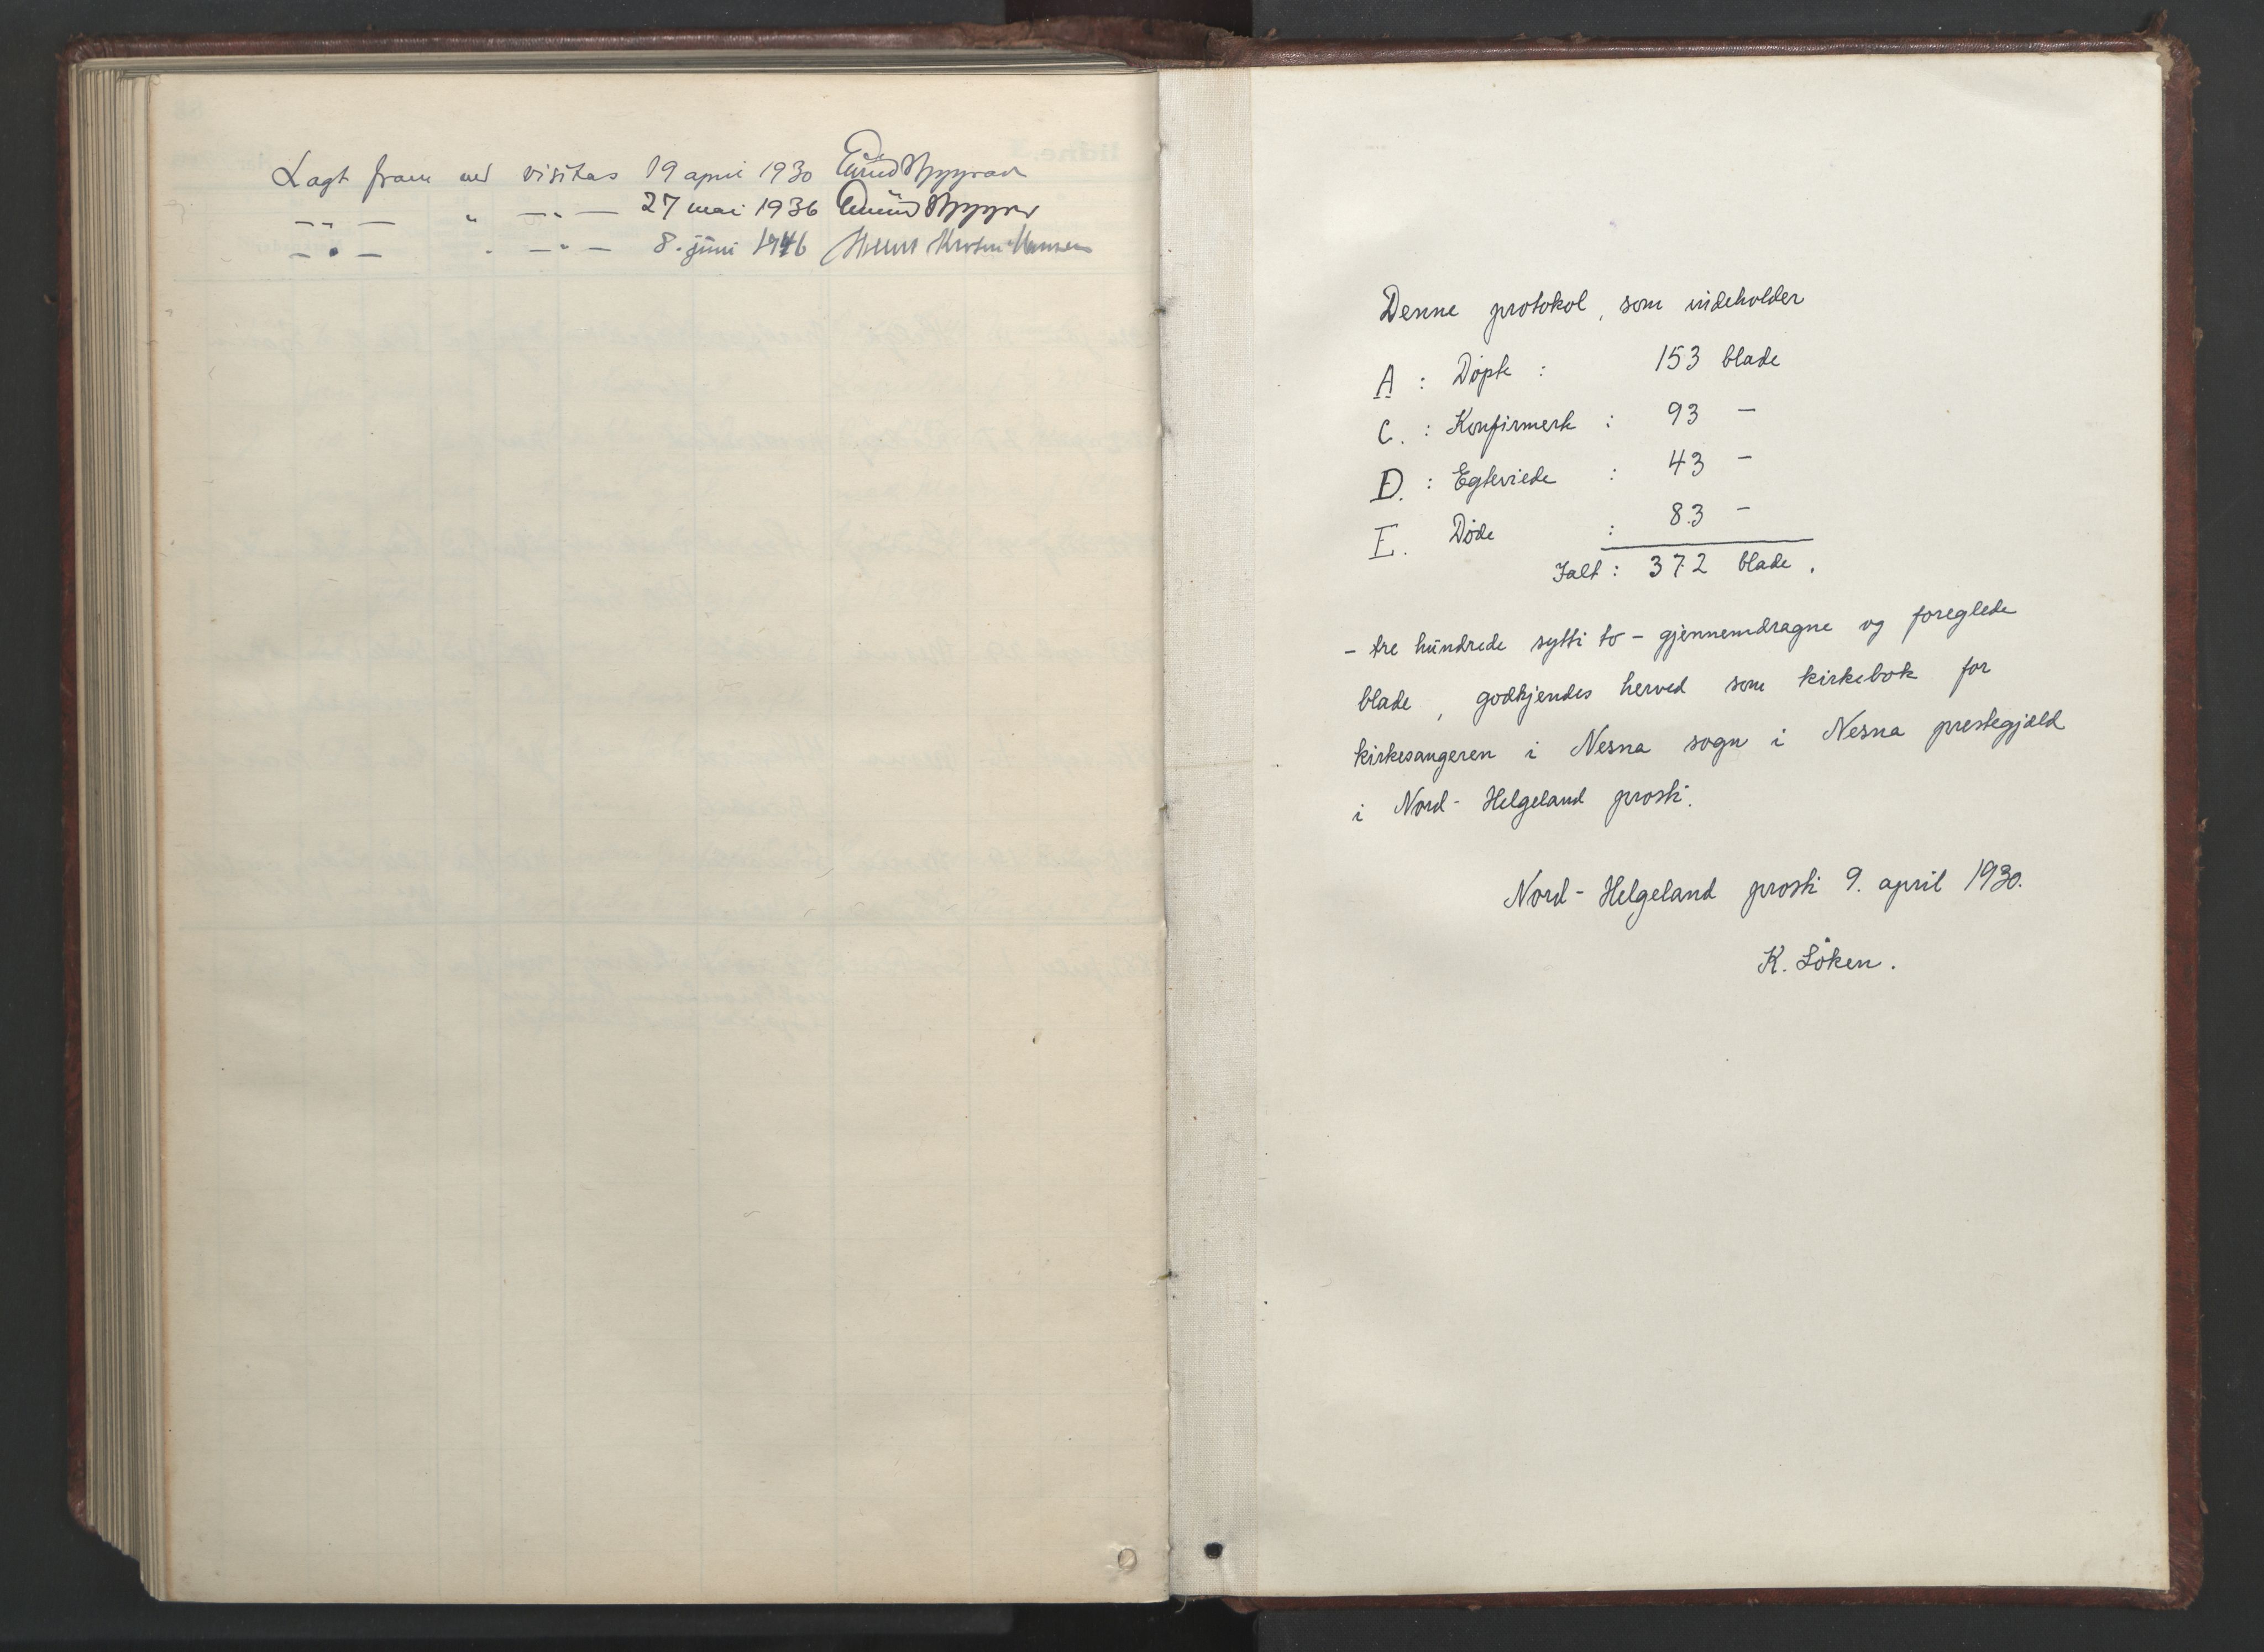 Lagt fram ved visitas 19 april 1930 Eivind Berggrav
— " — " — " — 27 mai 1936 Eivind Berggrav
— " — " — " — 8. juni 1946
Denne protokol, som indeholder
A : Døpte : 153 blade
C. : Konfirmerte : 93 —
D. : Egteviede : 43 —
E. Døde : 83 —
Ialt : 372 blade.
- tre hundrede sytti to - gjennemdragne og foreglede
blade, godkjendes herved som kirkebok for
kirkesangeren i Nesna sogn i Nesna prestegjæld
i Nord-Helgeland prosti.
Nord-Helgeland prosti 9. april 1930.
K. Løken.